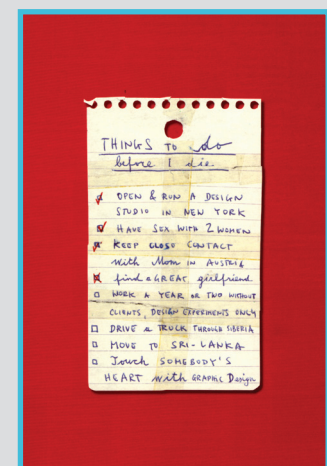 THINGS TO do
before I die.
OPEN & RUN A DESIGN
STUDIO IN NEW YORK
HAVE SEX WITH 2 WOMEN
KEEP CLOSE CONTACT
with Mom IN AUSTRIA
find a GREAT girlfriend
WORK A YEAR OR TWO WITHOUT
CLIENTS, DESIGN EXPERIMENTS ONLY
DRIVE a TRUCK THROUGH SIBERIA
MOVE TO SRI-LANKA
Touch SOMEBODY'S
HEART with GRAPHIC Design